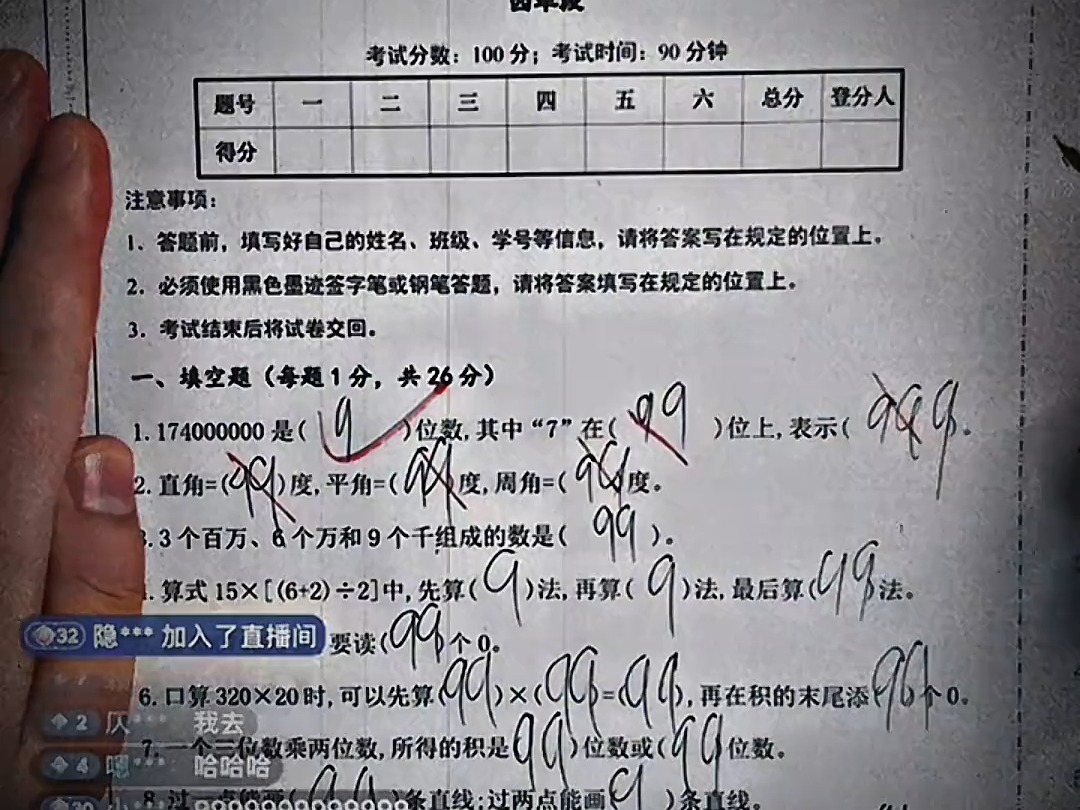 四年段
考试分数：100 分；考试时间：90 分钟
题号 一 二 三 四 五 六 总分 登分人
得分
注意事项：
1．答题前，填写好自己的姓名、班级、学号等信息，请将答案写在规定的位置上。
2．必须使用黑色墨迹签字笔或钢笔答题，请将答案填写在规定的位置上。
3．考试结束后将试卷交回。
一、填空题（每题 1 分，共 26 分）
1. 174000000 是( 9 )位数，其中“7”在( 99 )位上，表示( 999 。
2. 直角=( 99 )度，平角=( 99 )度，周角=( 99 度。
3. 3 个百万、6 个万和 9 个千组成的数是( 99 )。
算式 15×[(6+2)÷2]中，先算( 9 )法，再算( 9 )法，最后算( 99 法。
32 隐*** 加入了直播间 要读( 99 个 0。
6. 口算 320×20 时，可以先算( 99 )×( 99 = ( 99 )，再在积的末尾添( 99 个 0。
2 仄*** 我去
7. 一个三位数乘两位数，所得的积是( 99 )位数或( 99 位数。
4 嗯***： 哈哈哈
8. 过一点能画( 99 )条直线；过两点能画( 9 )条直线。